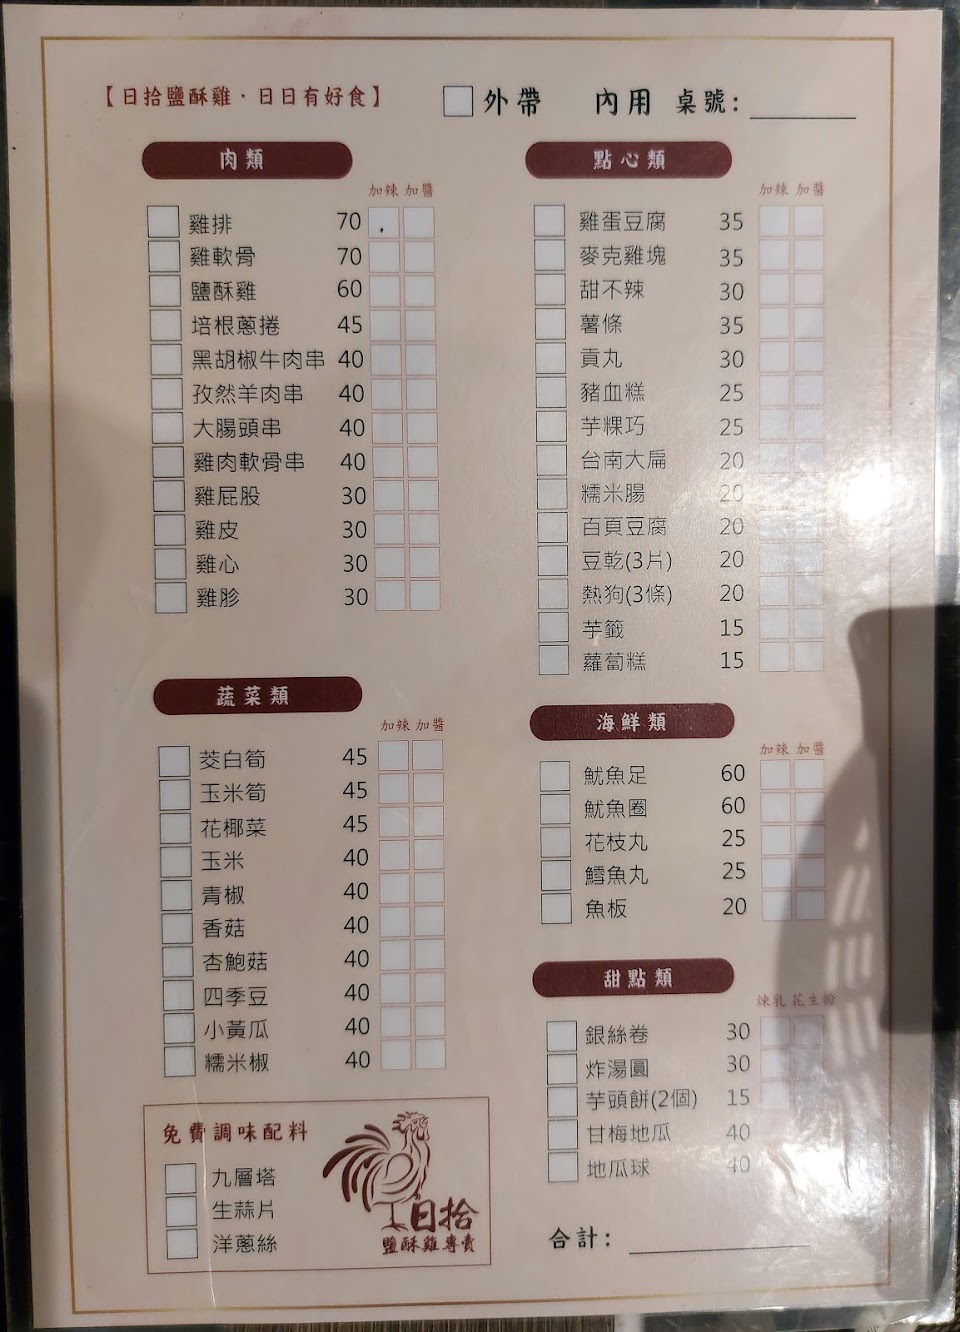 【日拾鹽酥雞·日日有好食】
外帶 內用 桌號：
肉類
加辣 加醬
雞排 70
雞軟骨 70
鹽酥雞 60
培根蔥捲 45
黑胡椒牛肉串 40
孜然羊肉串 40
大腸頭串 40
雞肉軟骨串 40
雞屁股 30
雞皮 30
雞心 30
雞胗 30
蔬菜類
加辣 加醬
茭白筍 45
玉米筍 45
花椰菜 45
玉米 40
青椒 40
香菇 40
杏鮑菇 40
四季豆 40
小黃瓜 40
糯米椒 40
免費調味配料
九層塔
生蒜片
洋蔥絲
日拾
鹽酥雞專賣
點心類
加辣 加醬
雞蛋豆腐 35
麥克雞塊 35
甜不辣 30
薯條 35
貢丸 30
豬血糕 25
芋粿巧 25
台南大扁 20
糯米腸 20
百頁豆腐 20
豆乾(3片) 20
熱狗(3條) 20
芋籤 15
蘿蔔糕 15
海鮮類
加辣 加醬
魷魚足 60
魷魚圈 60
花枝丸 25
鱈魚丸 25
魚板 20
甜點類
煉乳 花生粉
銀絲卷 30
炸湯圓 30
芋頭餅(2個) 15
甘梅地瓜 40
地瓜球 40
合計：